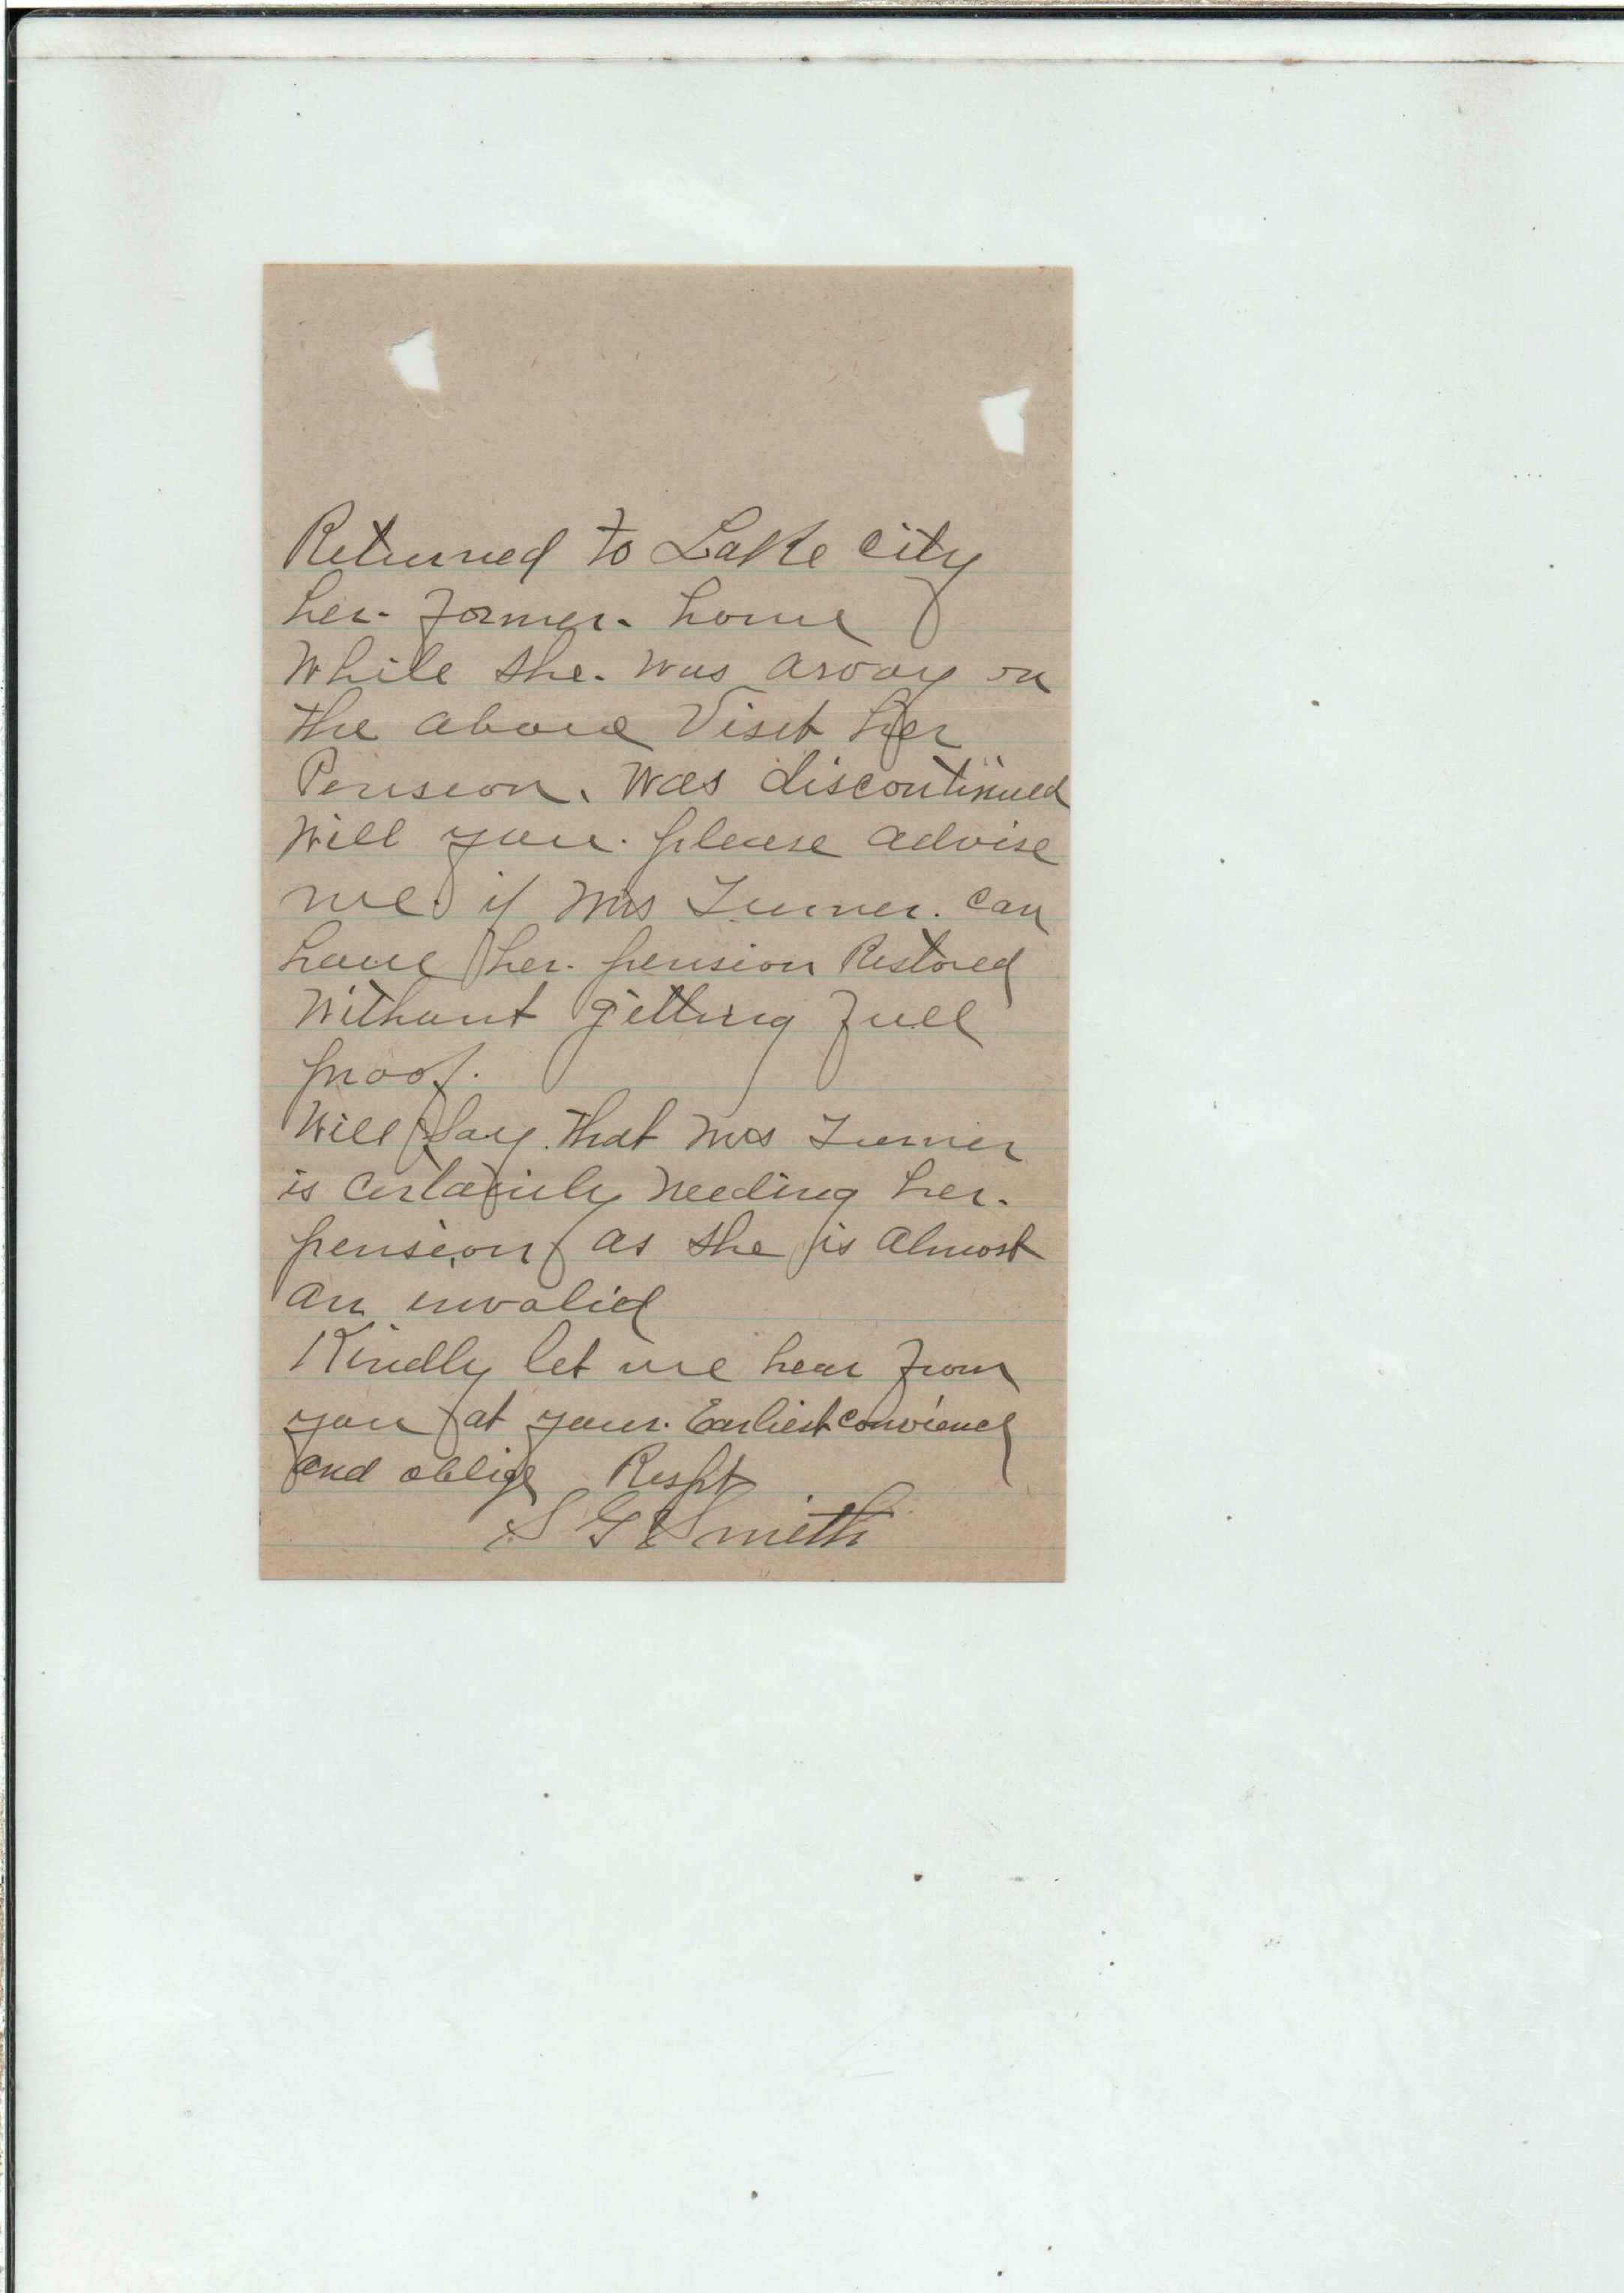 Returned to Lake City
her. former. home
While she. was away on
the above Visit her
Pension. was discontinued
Will you. please advise
me. if Mrs Turner. can
have her. pension Restored
Without getting full
proof.
Will Say. that Mrs Turner
is certainly needing her.
pension as she is almost
an invalid
Kindly let me hear from
you at your. Earliest convience
and oblige Respt
S G Smith